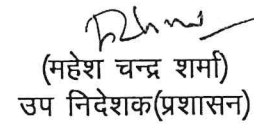 (महेश चन्द्र शर्मा)
उप निदेशक(प्रशासन)